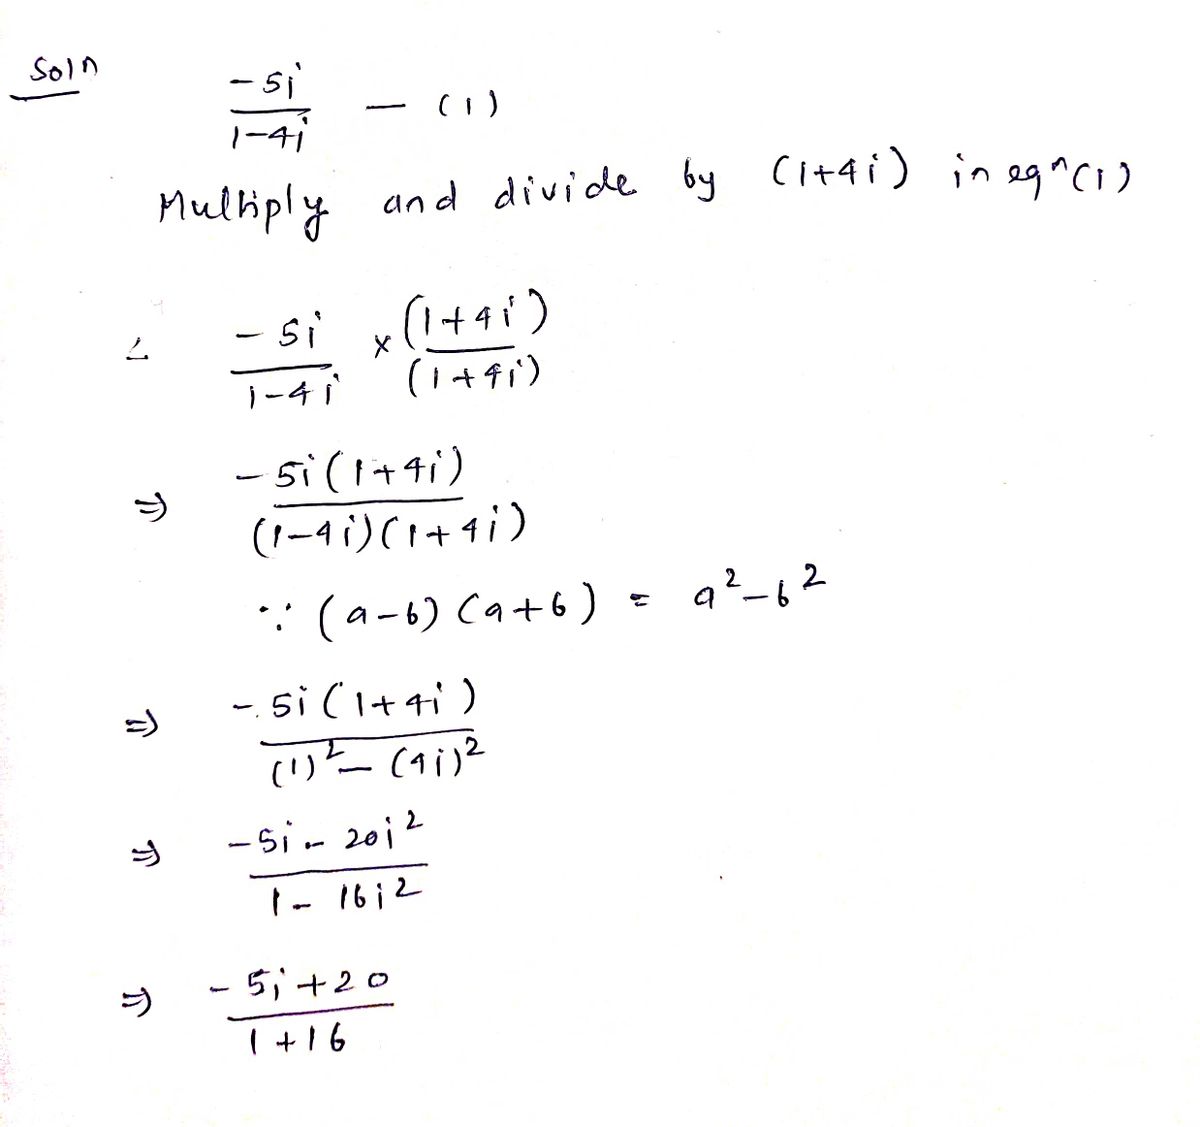 Soln
-5i
1-4i — (1)
Multiply and divide by (1+4i) in eqn (1)
∴ -5i/1-4i × (1+4i)/(1+4i)
⇒ -5i(1+4i)
(1-4i)(1+4i)
∵ (a-b)(a+b) = a²-b²
⇒ -5i(1+4i)
(1)²-(4i)²
⇒ -5i-20i²
1-16i²
⇒ -5i+20
1+16